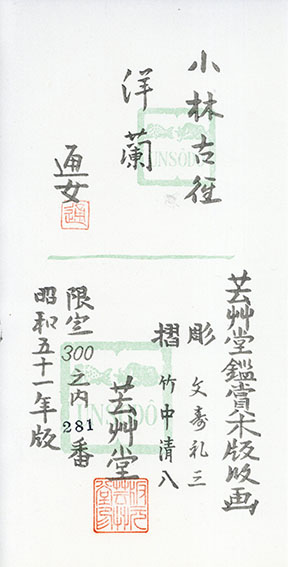 小林古径
洋蘭
通女
通
UNSŌDŌ
芸艸堂鑑賞木版版画
彫 文寿礼三
摺 竹中清八
芸艸堂
UNSŌDŌ
限定300之内281番
昭和五十一年版